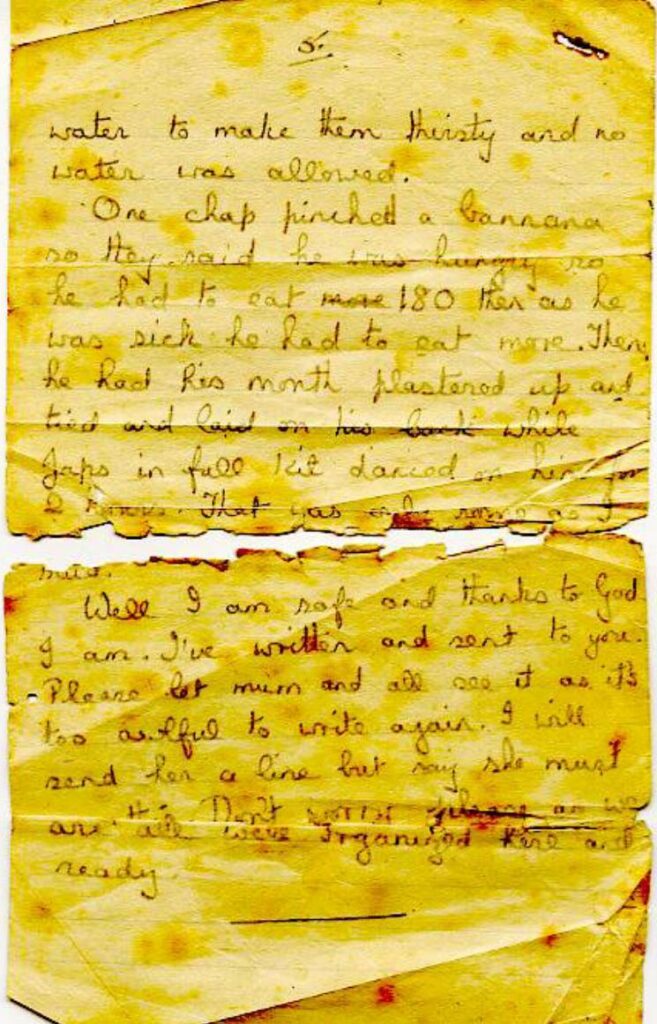 5.
water to make them thirsty and no
water was allowed.
One chap pinched a bannana
so they said he was hungry so
he had to eat more 180 then as he
was sick he had to eat more. Then
he had his mouth plastered up and
tied and laid on his back while
Japs in full kit danced on him for
2 hours. That was
Well I am safe and thanks to God
I am. I've written and sent to you.
Please let mum and all see it as it's
too awlful to write again. I will
send her a line but say she must
Don't worry please as we
are all well organized here and
ready.